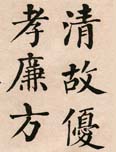 清故優
孝廉方